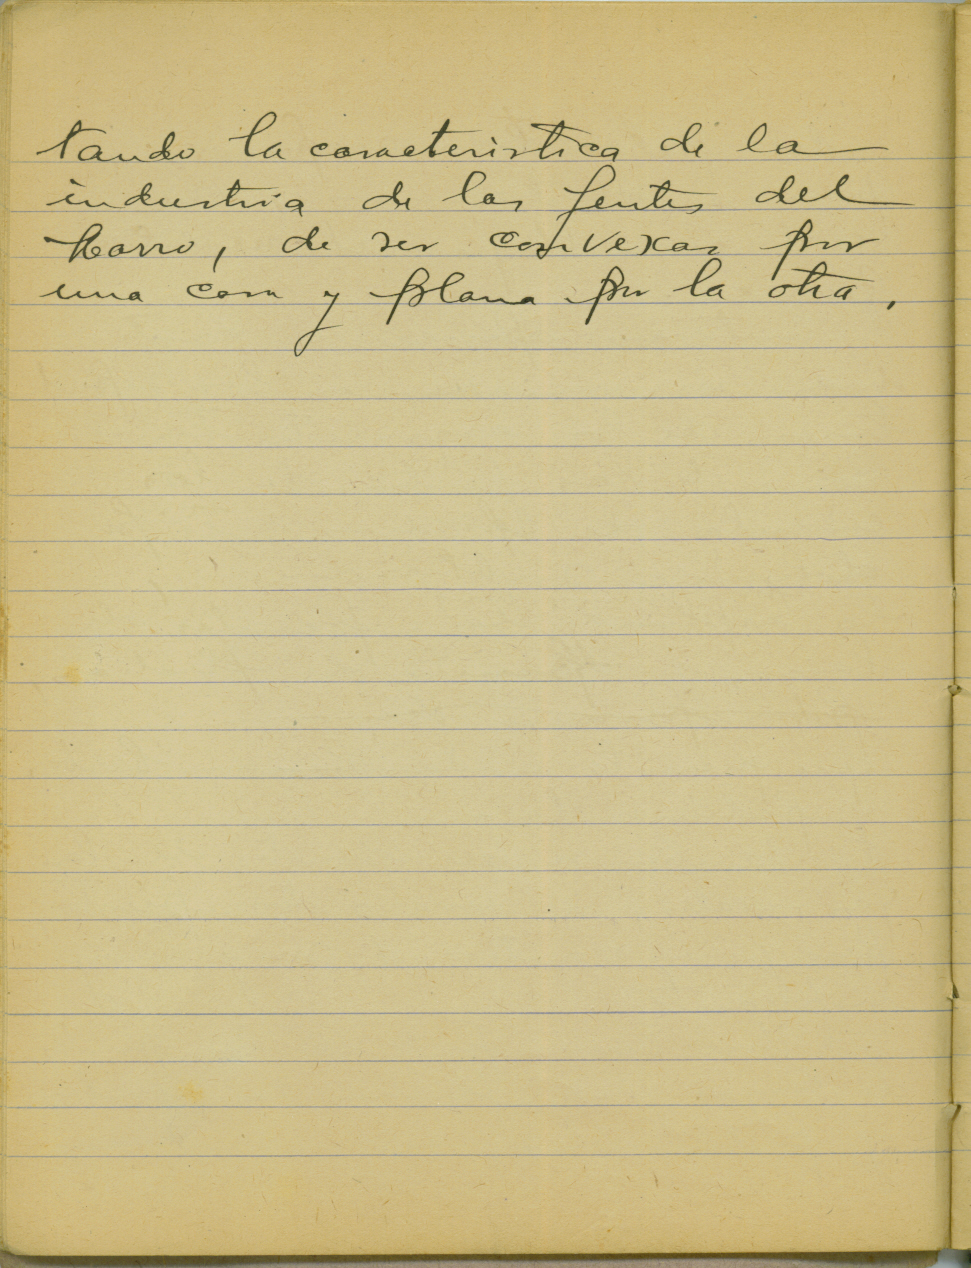 tando la caracteristica de la
industria de las gentes del
, de ser convexas por
una cara y plana por la otra,